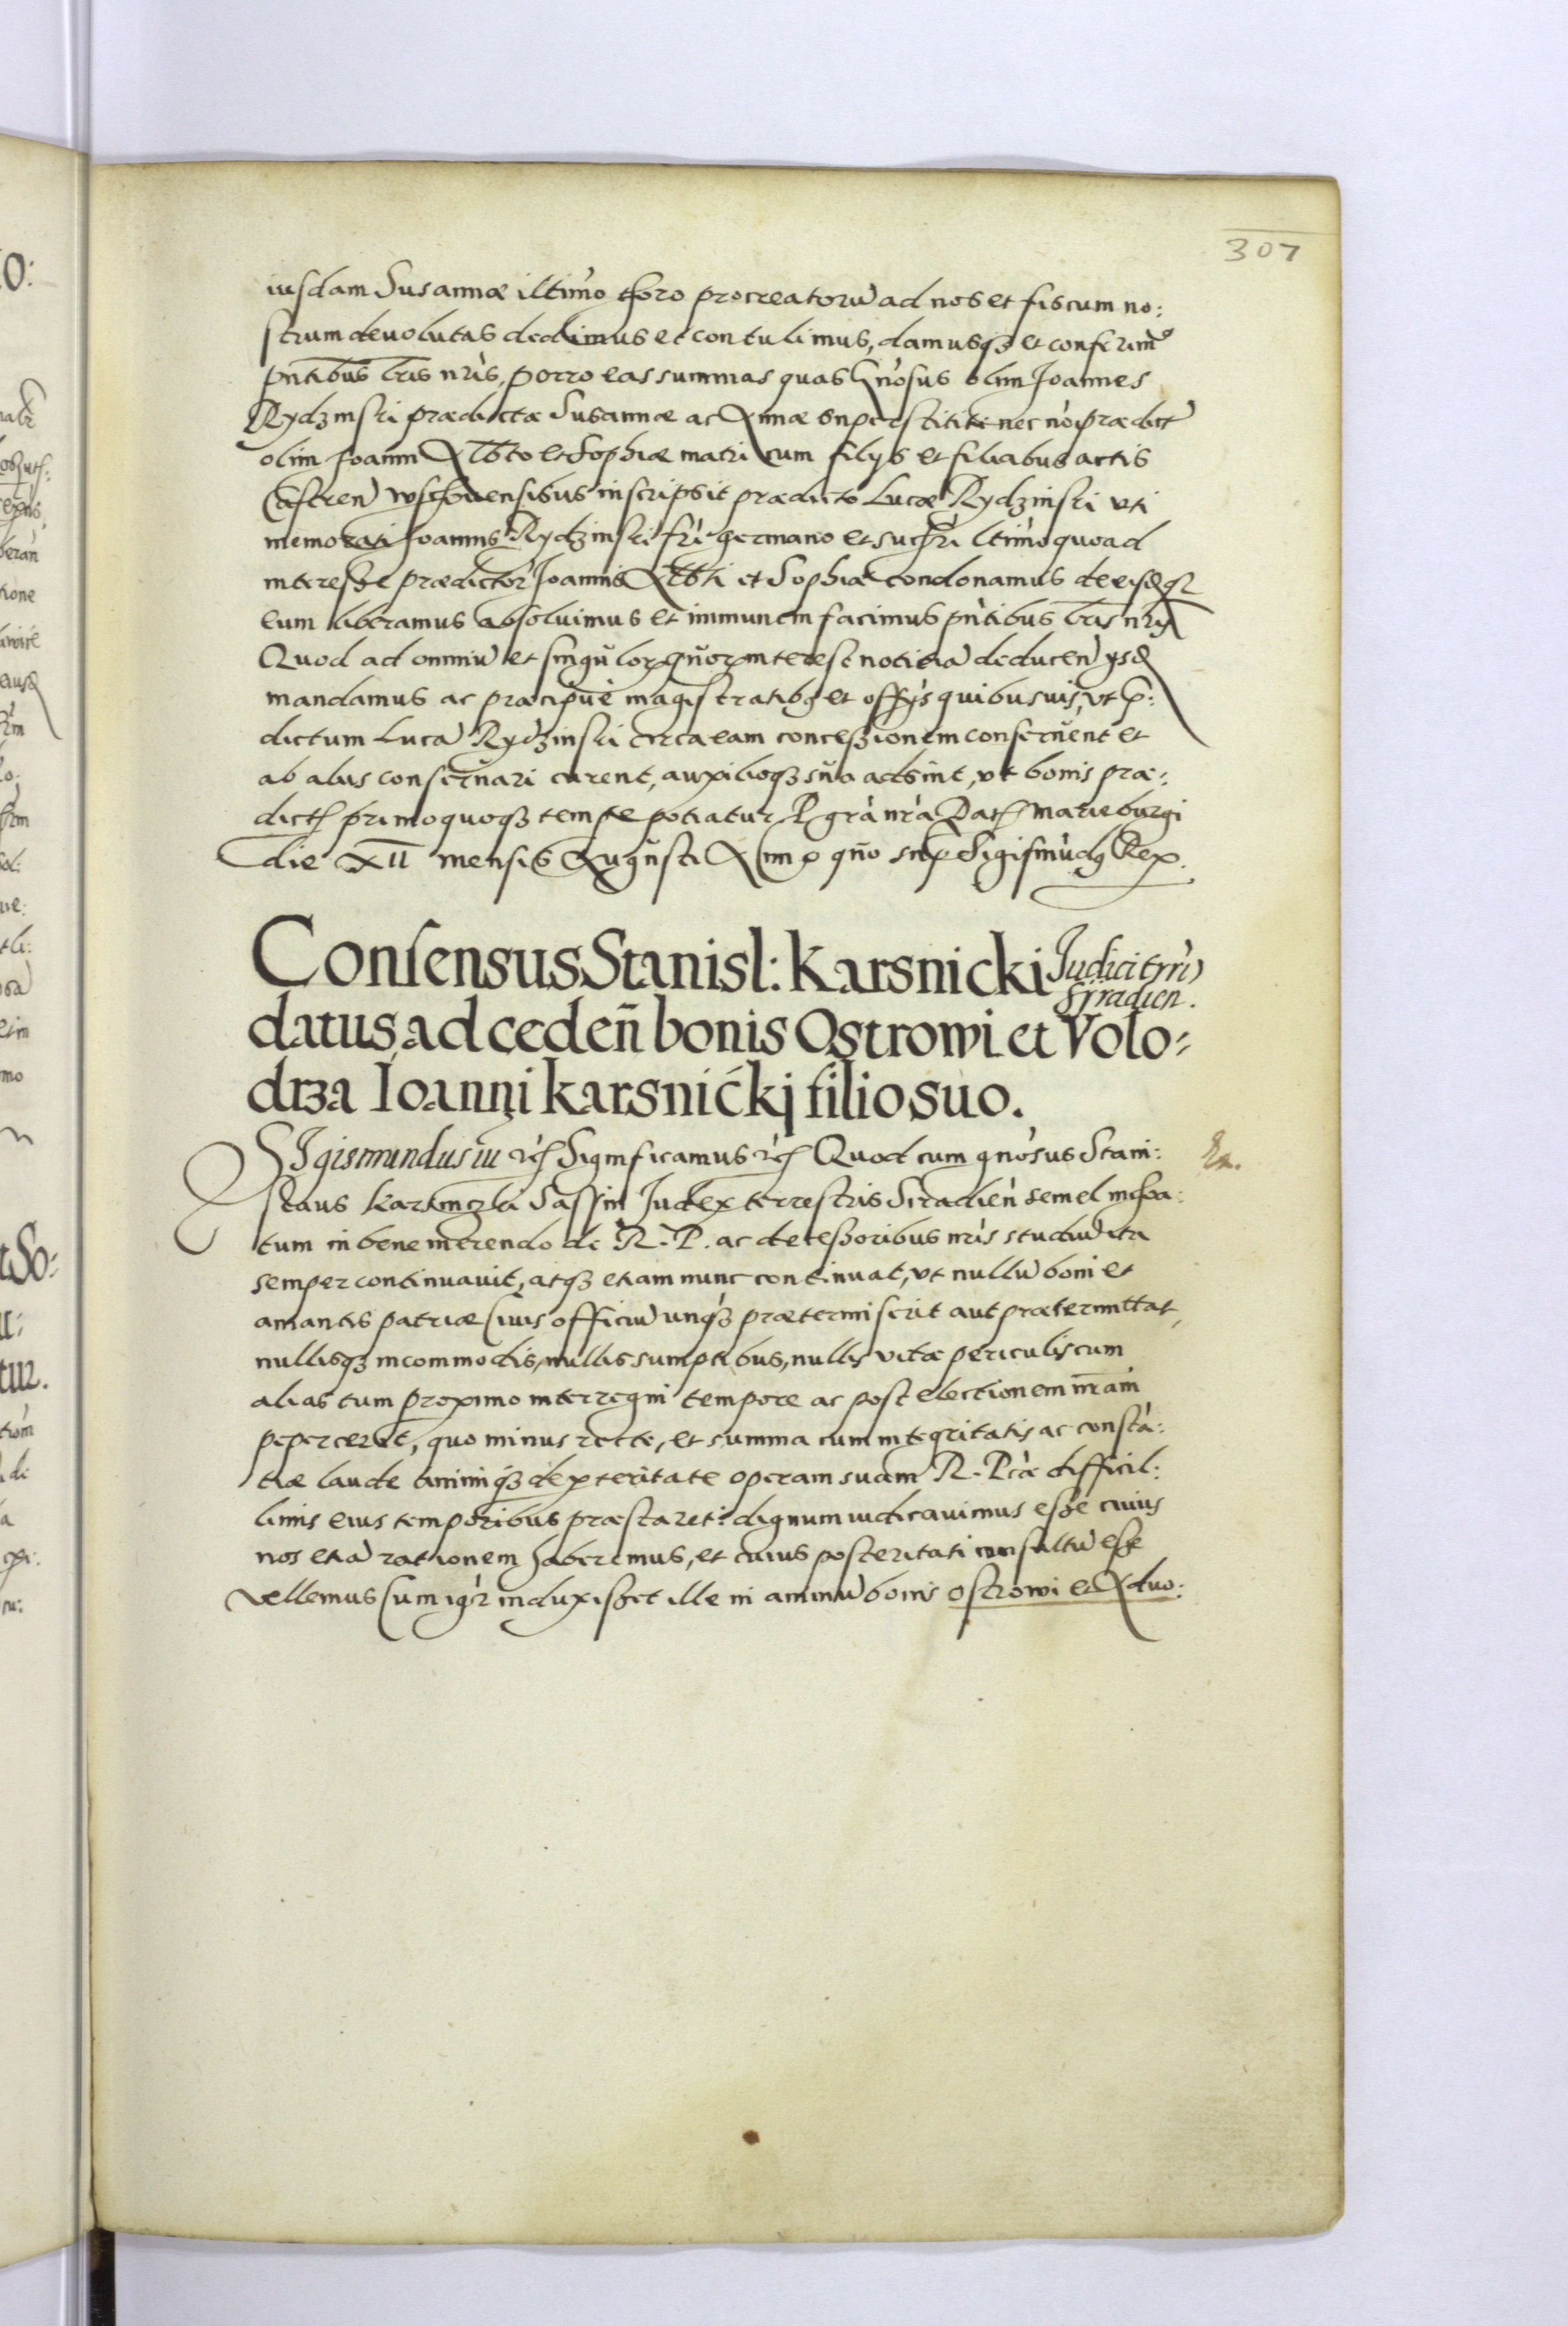 307
iusdam Susannæ illtimo thoro procreatorũ ad nos et fiscum no:
strum deuolutas dedimus et contulimus, damusqȝ et conferimꝰ
pñtibus lris nris, porro eas summas quas Gnosus olim Joannes
Rydzinski prædictæ Susannæ ac Annæ superstiti nec nõ prædict
olim Joanni Alb̃to et Sophiæ matri cum filys et filiabus actis
Castren wschouensibus inscripsit prædicto Lucæ Rydzinski vti
memorati Joannis Rydzinski fr̃i germano et sucri ltimo quoad
interesse prædictor Joannis Alb̃ti et Sophiæ condonamus de eisdqȝ
eum liberamus absoluimus et immunem facimus pñtibus lris nris
Quod ad omniũ et singulor quor interest notitiã deducen ysd
mandamus ac præcipuè magistratibꝫ et offys quibusuis, vt p:
dictum Lucã Rydzinski circa eam concessionem conseruent et
ab alys conseruari curent, auxilioqȝ suo adsint, vt bonis præ:
dictis primo quoqȝ tempe potiatur P grã nrã Dat Marieburgi
die XII mensis Augusti Anno quo sup Sigismudꝫ Rex.
Consensus Stanisl: Karsnicki Judici trri
Siradien.
datus ad ceden̄ bonis Ostrowi et Volo:
drza Ioanni Karsnicki filio suo.
SIgismundus iii rc̃ Significamus rc̃ Quod cum gnosus Stani:
slaus Karsnizki Sassin Judex terrestris Siradien semel incha:
tum in bene merendo de R. P. ac decessoribus nris studiũ ita
semper continuauit, atqȝ etiam nunc continuat, vt nullũ boni et
amantis patriæ ciuis officiũ unqȝ prætermiserit aut prætermittat,
nullisqȝ incommodis, nullis sumptibus, nullis vitæ periculis cum
alias tum proximo interregni tempore ac post electionem nram
pepercerit, quo minus recte, et summa cum integritatis ac constã:
tiæ laude animiqȝ dexteritate operam suam R. P.cæ difficil:
limis eius temporibus præstaret: dignum iudicauimus esse cuius
nos etiã rationem haberemus, et cuius posteritati consultũ esse
vellemus Cum igr̃ induxisset ille in animũ bonis Ostrowi et Aduo: